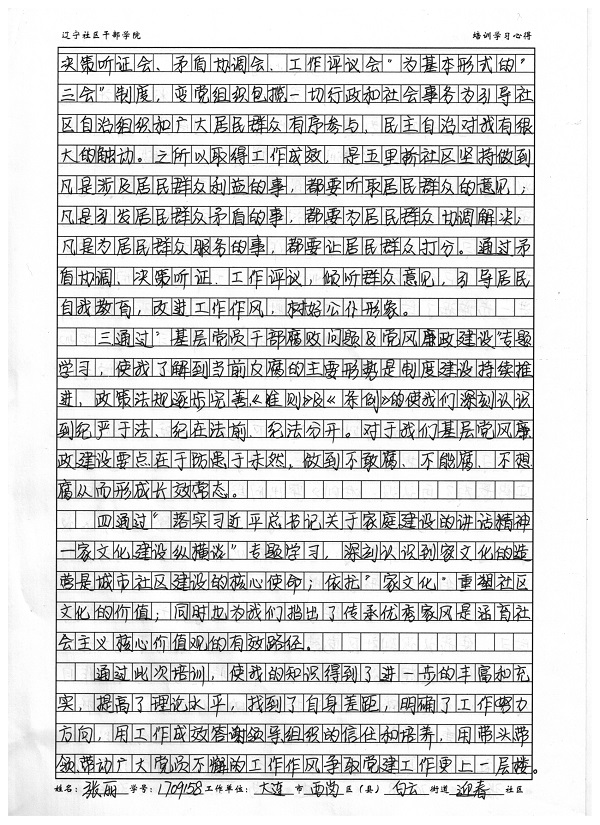 辽宁社区干部学院 培训学习心得
决策听证会、矛盾协调会、工作评议会"为基本形式的"
三会"制度，变党组织包揽一切行政和社会事务为引导社
区自治组织和广大居民群众有序参与、民主自治对我有很
大的触动。之所以取得工作成效，是五里桥社区坚持做到
凡是涉及居民群众利益的事，都要听取居民群众的意见；
凡是引发居民群众矛盾的事，都要为居民群众协调解决；
凡是为居民群众服务的事，都要让居民群众打分。通过矛
盾协调、决策听证、工作评议，倾听群众意见，引导居民
自我教育，改进工作作风，树好公仆形象。
三通过"基层党员干部腐败问题及党风廉政建设"专题
学习，使我了解到当前反腐的主要形势是制度建设持续推
进，政策法规逐步完善《准则》及《条例》的使我们深刻认识
到纪严于法、纪在法前、纪法分开。对于我们基层党风廉
政建设要点在于防患于未然，做到不敢腐、不能腐、不想
腐从而形成长效常态。
四通过"落实习近平总书记关于家庭建设的讲话精神
一家文化建设纵横谈"专题学习，深刻认识到家文化的造
营是城市社区建设的核心使命；依托"家文化"重塑社区
文化的价值；同时也为我们指出了传承优秀家风是涵育社
会主义核心价值观的有效路径。
通过此次培训，使我的知识得到了进一步的丰富和充
实，提高了理论水平，找到了自身差距，明确了工作努力
方向，用工作成效答谢领导组织的信任和培养，用带头带
领、带动广大党员不懈的工作作风争取党建工作更上一层楼。
姓名：张丽 学号：1709158 工作单位：大连 市 西岗 区（县） 白云 街道 迎春 社区